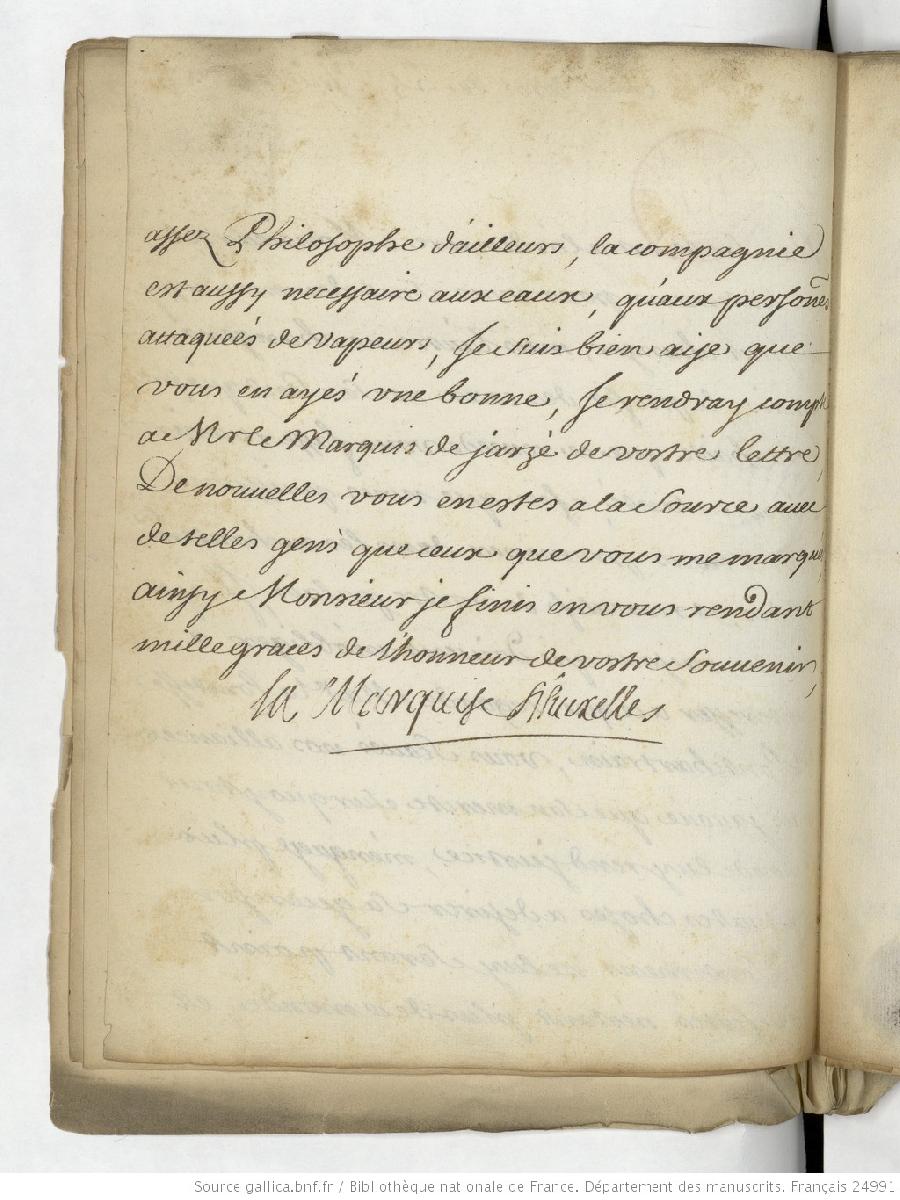 assez Philosophe d'ailleurs, la compagnie
est aussy necessaire aux eaux, qu'aux persones
attaqueés de vapeurs, Je suis bien aise que
vous en ayés vne bonne, Je rendray compte
a Mr le Marquis de jarzé de vostre lettre,
De nouuelles vous en estes a la source auec
de telles gens que ceux que vous me marqués,
ainsy Monsieur je finis en vous rendant
mille graces de l'honneur de vostre souuenir,
la Marquise d'huxelles
Source gallica.bnf.fr / Bibliothèque nationale de France. Département des manuscrits. Français 24991